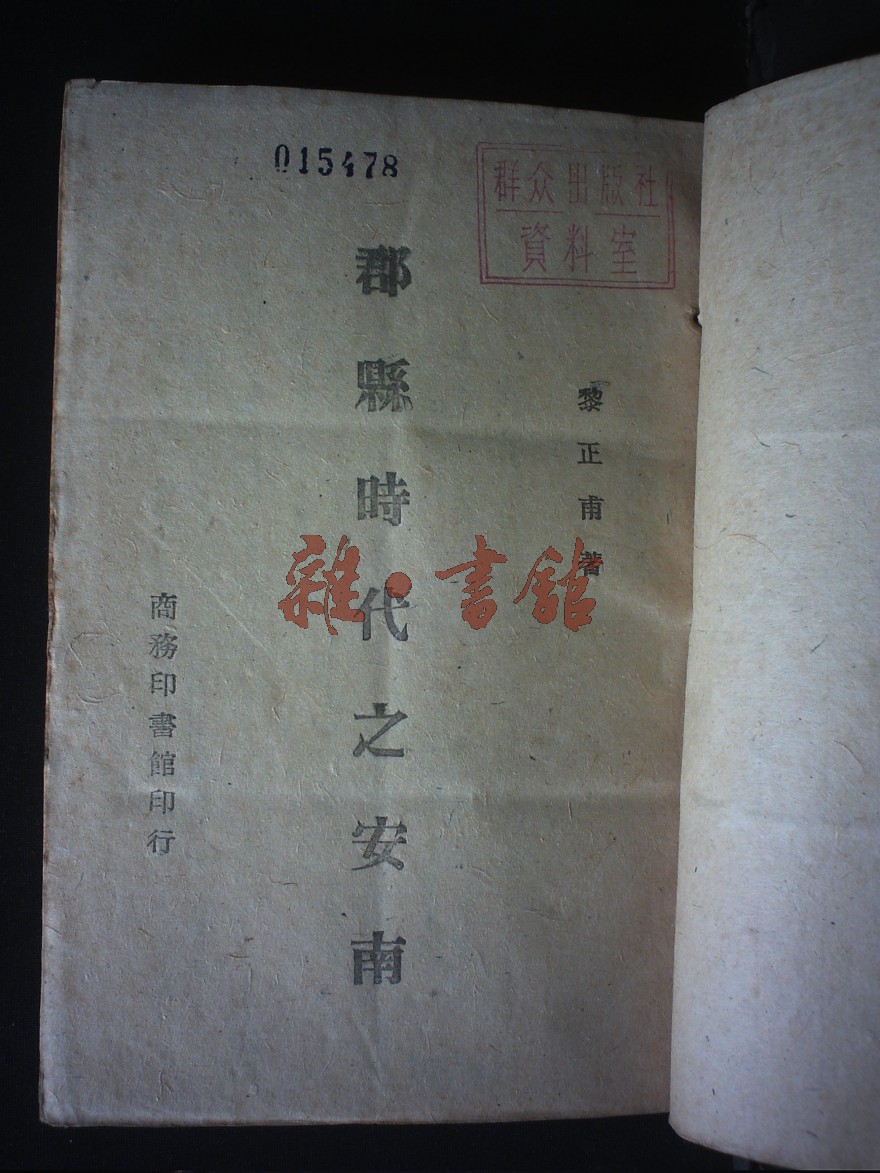 015478
群众出版社
資料室
黎正甫著
郡縣時代之安南
商務印書館印行
雜·書館